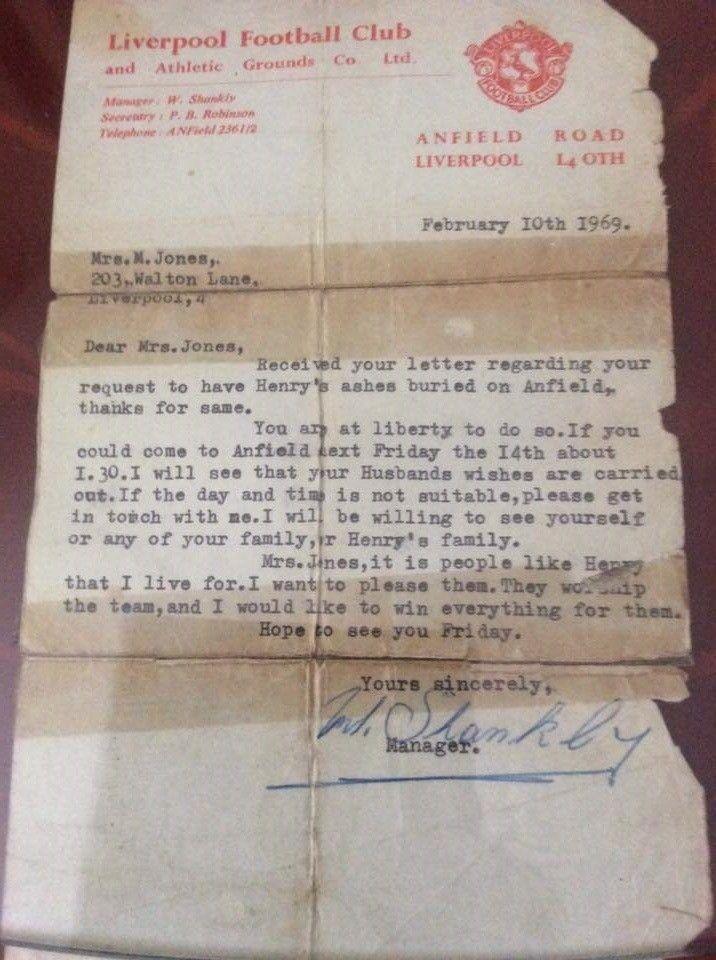 Liverpool Football Club
and Athletic Grounds Co Ltd.
LIVERPOOL
FOOTBALL CLUB
Manager: W. Shankly
Secretary: P. B. Robinson
Telephone: ANField 2361/2
ANFIELD ROAD
LIVERPOOL L4 OTH
February IOth I969.
Mrs.M.Jones,.
203,.Walton Lane,
Liverpool,4
Dear Mrs.Jones,
Received your letter regarding your
request to have Henry's ashes buried on Anfield,.
thanks for same.
You are at liberty to do so.If you
could come to Anfield next Friday the I4th about
I.30.I will see that your Husbands wishes are carried
out.If the day and time is not suitable,please get
in touch with me.I will be willing to see yourself
or any of your family,or Henry's family.
Mrs.Jones,it is people like Henry
that I live for.I want to please them.They worship
the team,and I would like to win everything for them.
Hope to see you Friday.
Yours sincerely,
W. Shankly
Manager.